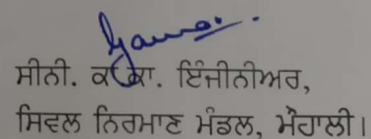 ਸੀਨੀ. ਕਾ.ਕਾ. ਇੰਜੀਨੀਅਰ,
ਸਿਵਲ ਨਿਰਮਾਣ ਮੰਡਲ, ਮੋਹਾਲੀ।